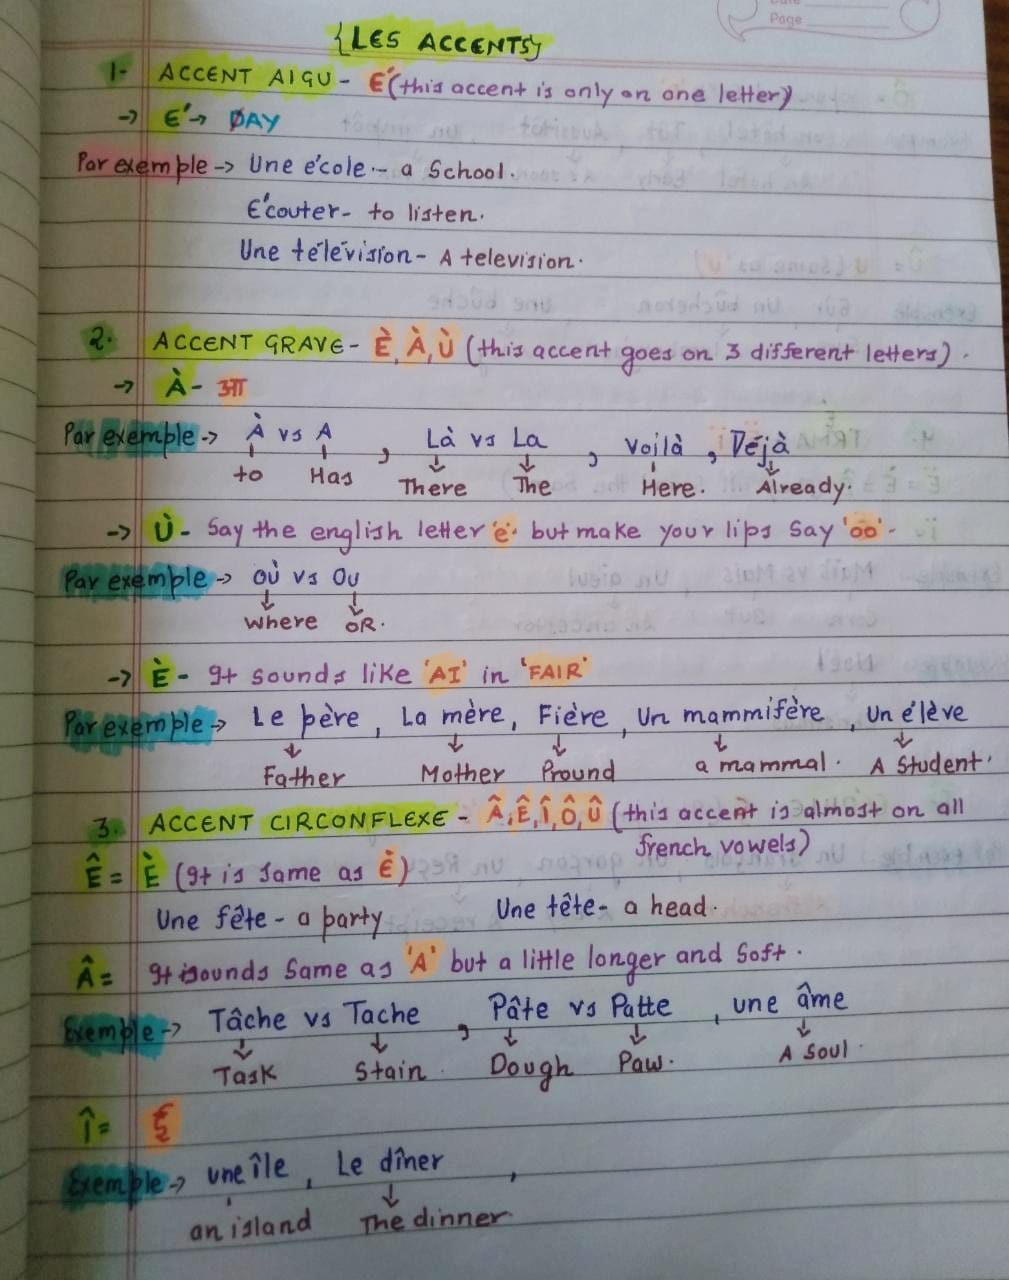 Page
{LES ACCENTS}
1- ACCENT AIGU - É (this accent is only on one letter)
→ É → DAY
Par exemple → Une école - a School.
Écouter - to listen.
Une télévision - A television.
2. ACCENT GRAVE - È, À, Ù (this accent goes on 3 different letters).
→ À - आ
Par exemple → À vs A , Là vs La , Voilà , Déjà
to Has There The Here. Already.
→ Ù - Say the english letter 'e' but make your lips say 'oo' -
Par exemple → Où vs Ou
Where OR.
→ È - It sounds like 'AI' in 'FAIR'
Par exemple → Le père , La mère , Fière , Un mammifère , Un élève
Father Mother Pround a mammal. A Student.
3. ACCENT CIRCONFLEXE - Â, Ê, Î, Ô, Û (this accent is almost on all
french vowels)
Ê = È (It is same as È)
Une fête - a party Une tête - a head.
Â = It sounds same as 'A' but a little longer and soft.
Exemple → Tâche vs Tache , Pâte vs Patte , une âme
Task Stain Dough Paw. A soul.
Î = ई
Exemple → une île , Le dîner ,
an island The dinner.